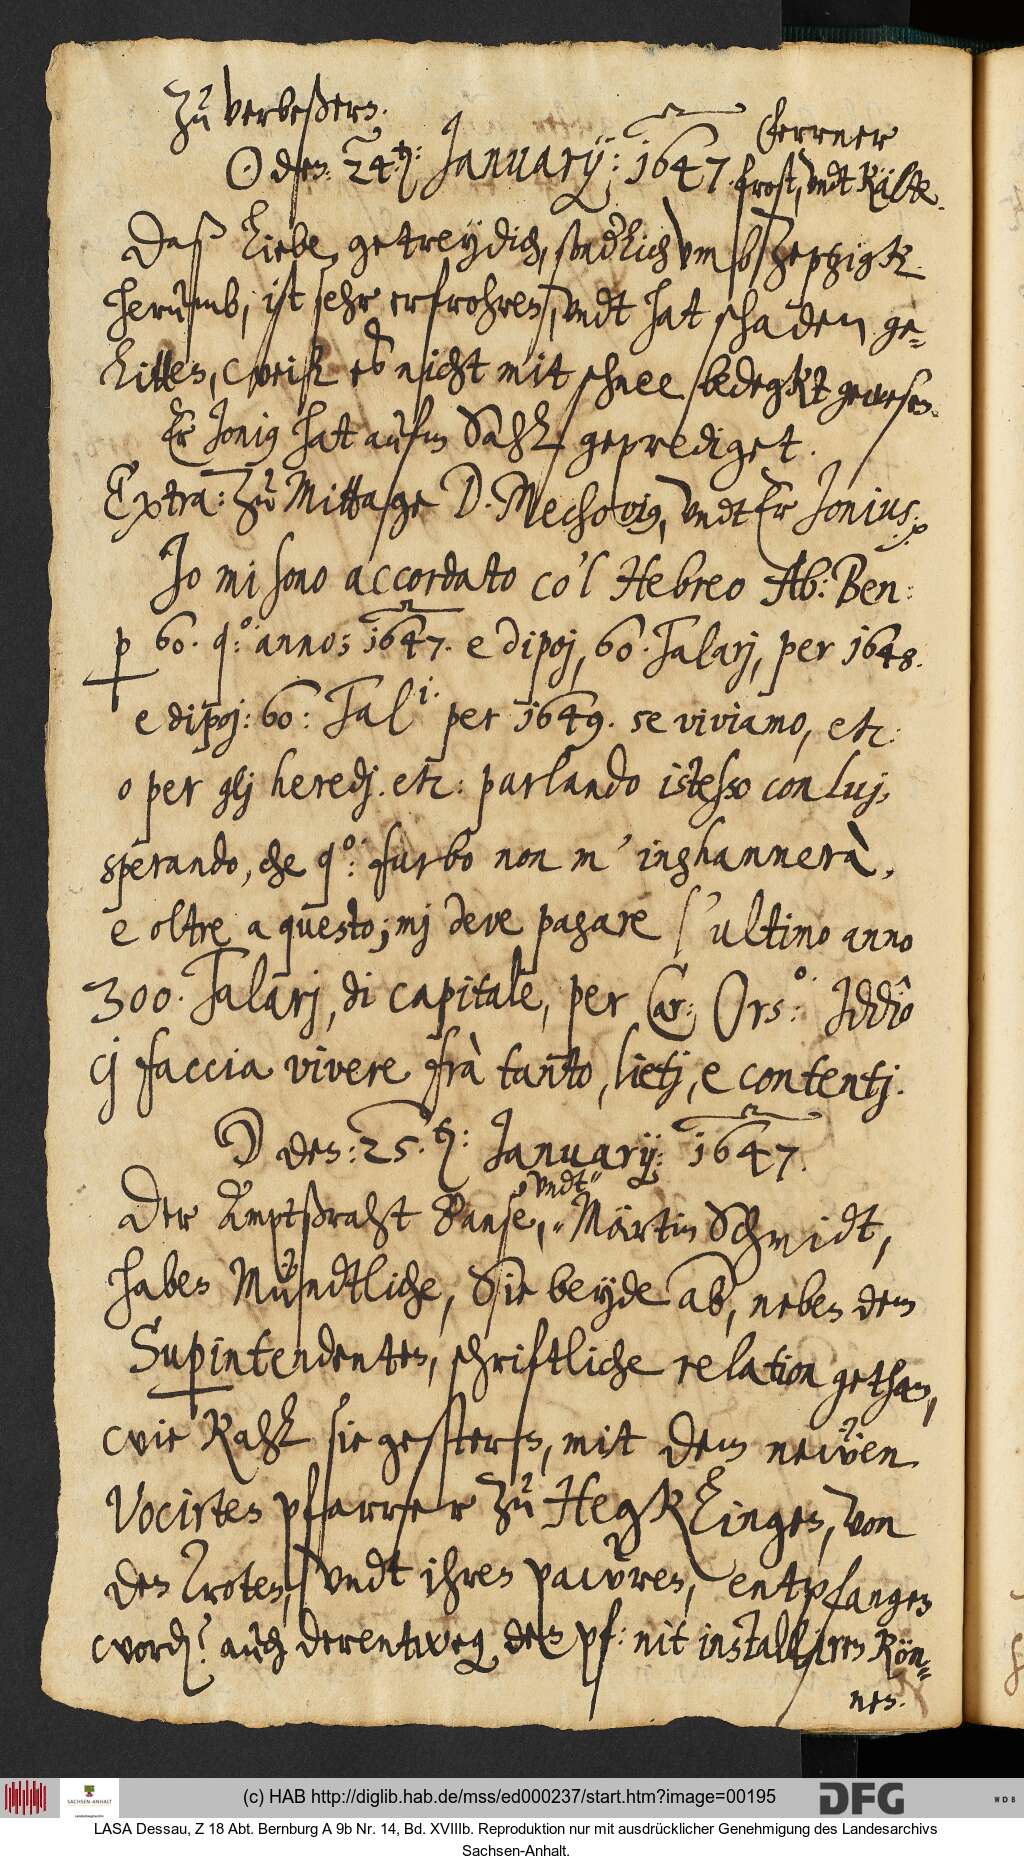 Zu verbeßern.
⊙ den: 24.ten: January: 1647. ferrner
frost, vndt Kälte.
Daß liebe getreydich, sonderlich vmb Leptzigk
herumb, ist sehr erfrohren, vndt hat schaden ge=
litten, weil es nicht mit schnee bedegkt gewesen.
Er Jonius hat aufm Sahl geprediget.
Extra: zu Mittage D. Mechovius, vndt Er Jonius.
Io mi sono accordato co'l Hebreo Ab: Ben:
p 60. q.º: anno; 1647. e dipoj, 60. Talarj, per 1648.
e dipoj: 60: Tal.i per 1649. se viviamo, etc:
o per glj heredj. etc: parlando istesso con luj,
sperando, che q.º: furbo non m' inghannerà,
e oltre a questo; mj deve pagare l'ultimo anno
300. Talarj, di capitale, per Car: Ors.º: Iddio
cj faccia vivere frà tanto, lietj, e contentj.
☽ den: 25.ten: January: 1647.
Der Amptßraht Banse, vndt Märtin Schmidt,
haben Mündtliche, Sie beyde ab, neben dem
Supintendenten, schriftliche relation gethan,
wie Kahl sie gestern, mit dem newen
Vocirten pfarrer zu Hegklingen, von
den Croten, vndt ihren pawren, entpfangen
word? auch derentweg den pf: nit installiren Kön=
nen.
(c) HAB http://diglib.hab.de/mss/ed000237/start.htm?image=00195
SACHSEN-ANHALT
DFG
WDB
LASA Dessau, Z 18 Abt. Bernburg A 9b Nr. 14, Bd. XVIIIb. Reproduktion nur mit ausdrücklicher Genehmigung des Landesarchivs
Sachsen-Anhalt.